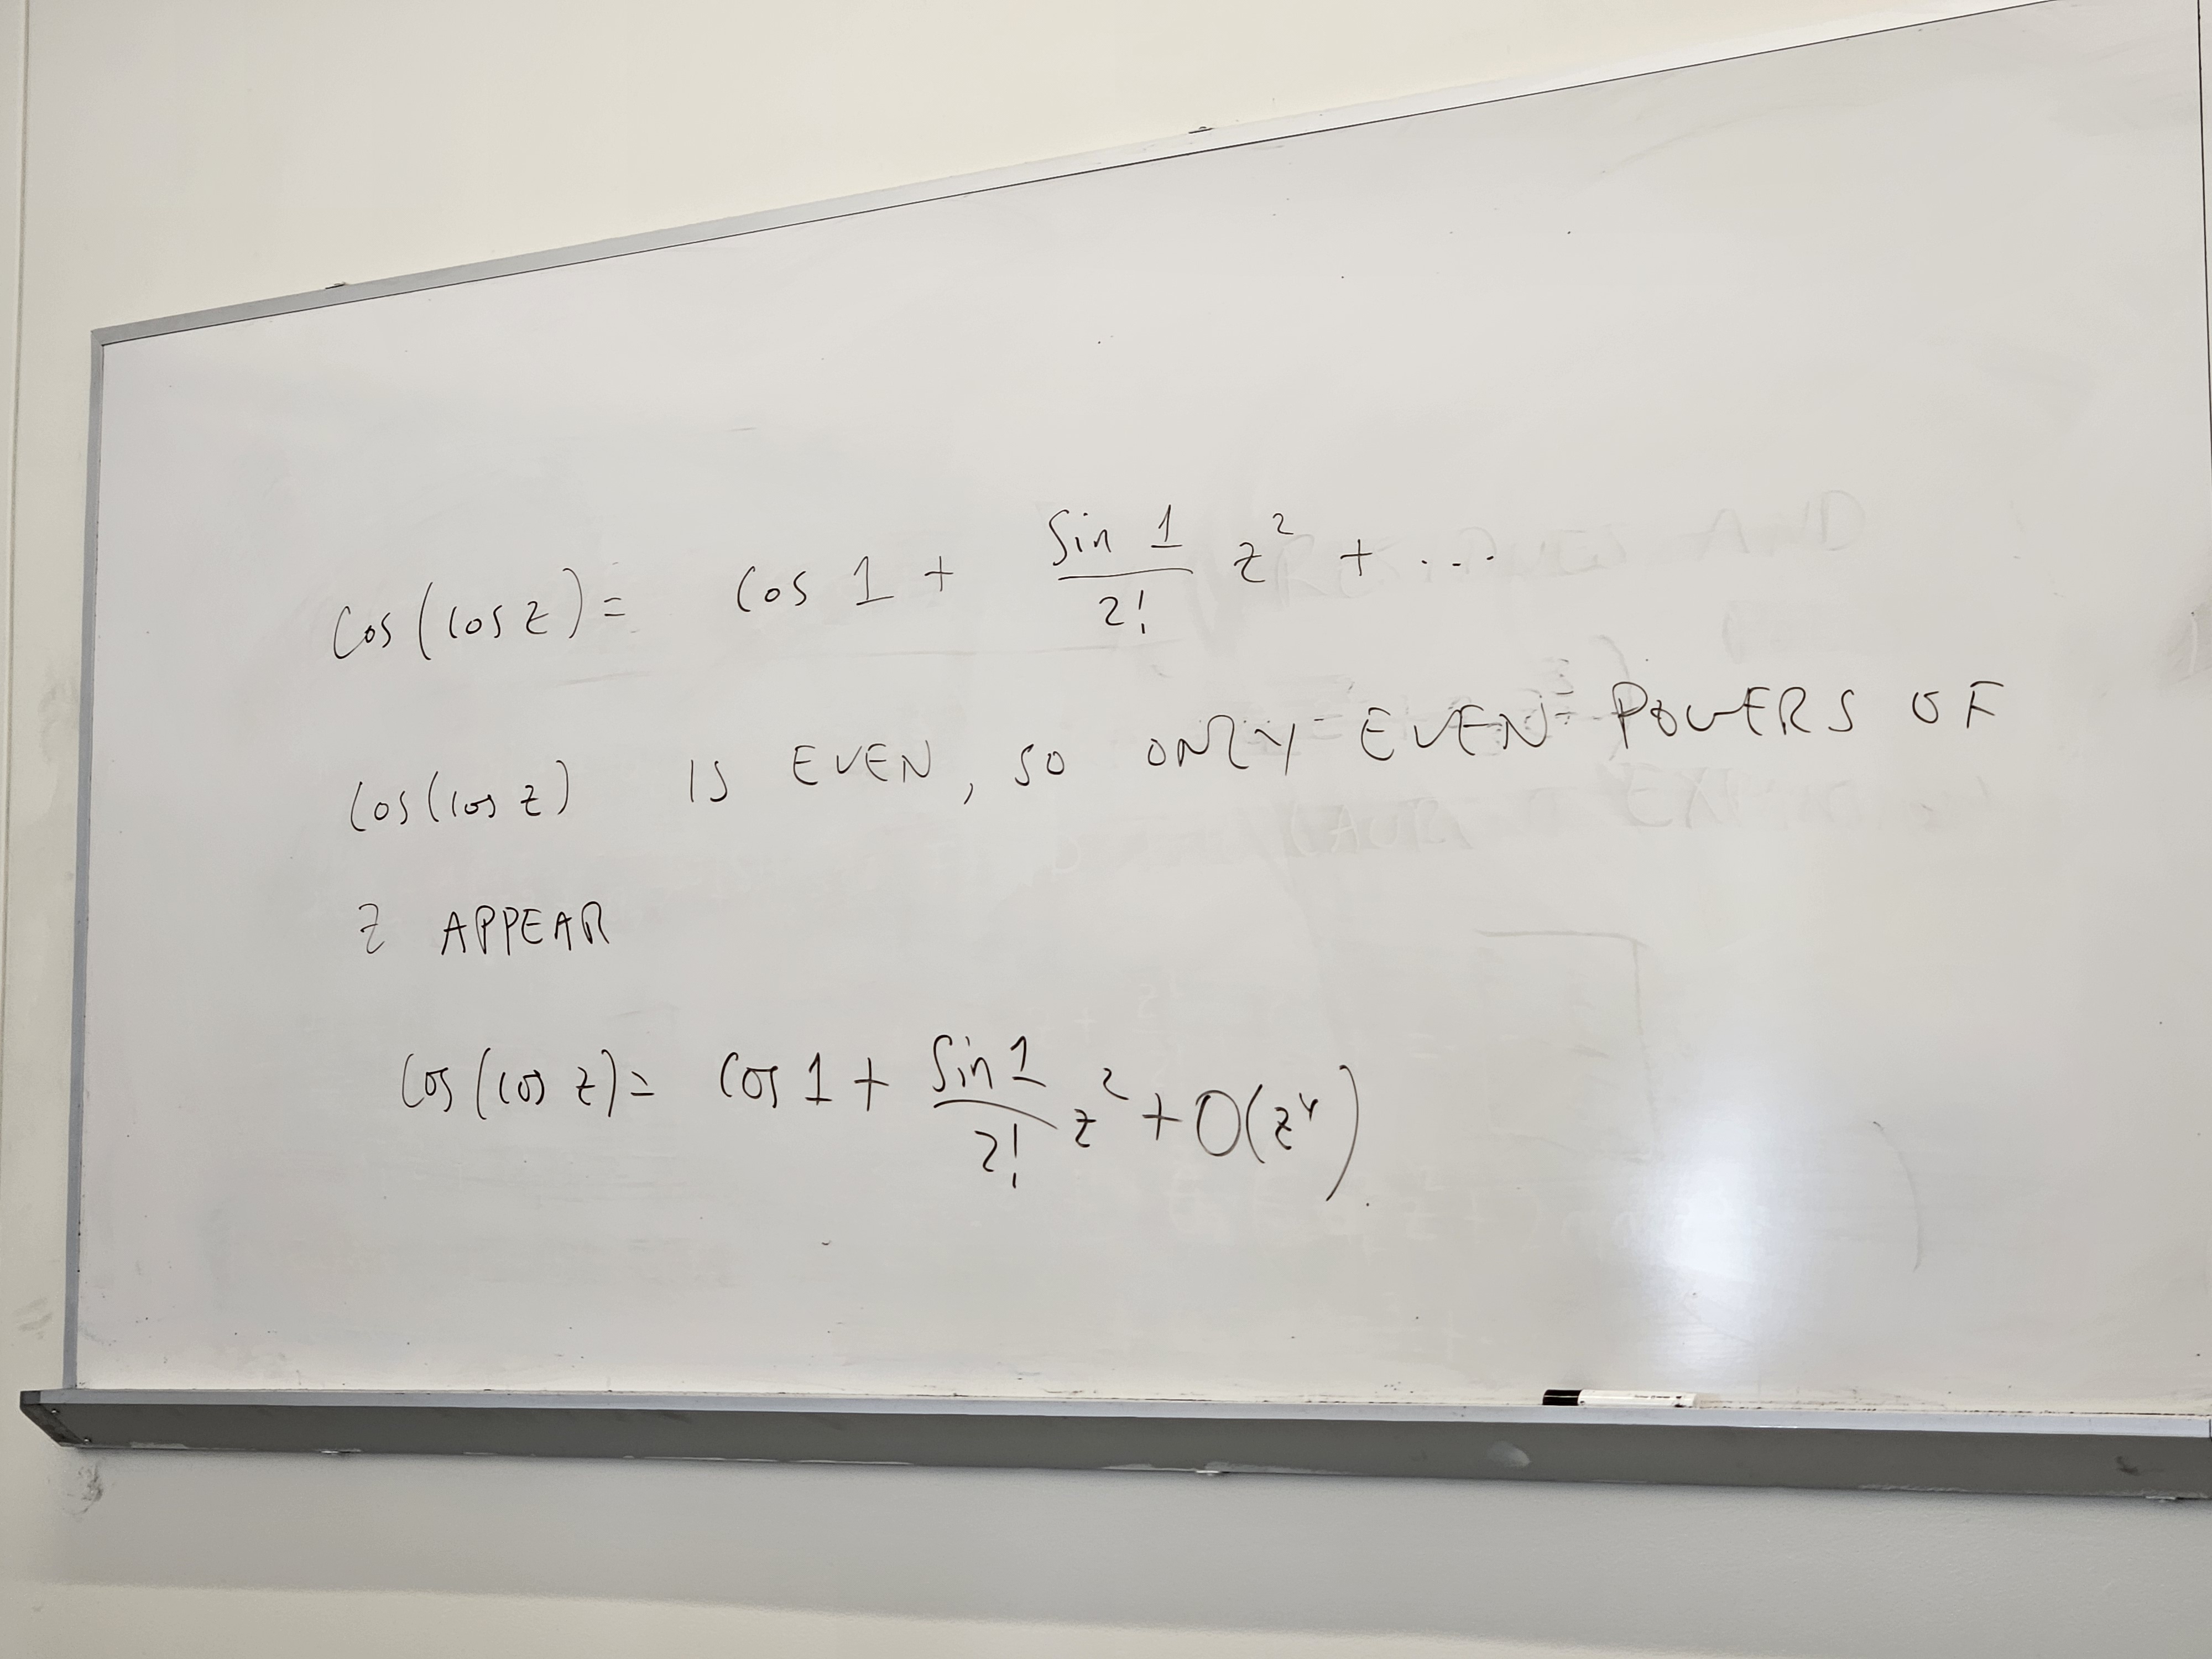 cos(cos z) = cos 1 + sin 1/2! z² + ...
cos(cos z) IS EVEN, SO ONLY EVEN POWERS OF
z APPEAR
cos(cos z) = cos 1 + sin 1/2! z² + O(z⁴)